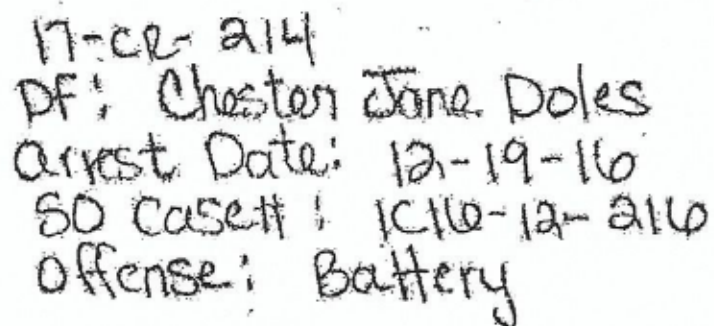 17-CR-214
DF: Chester Jane Doles
Arrest Date: 12-19-16
SO Case#: 1C16-12-216
Offense: Battery